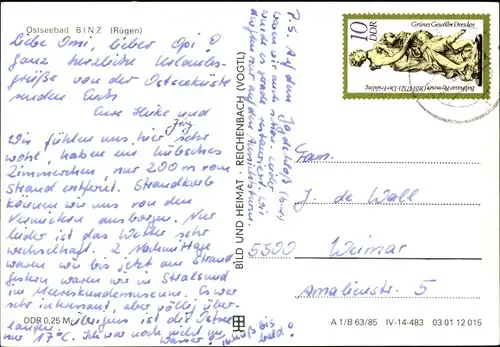 Ostseebad BINZ (Rügen)
Liebe Omi, lieber Opi!
Ganz herzliche Urlaubs-
grüße von der Ostseeküste
senden Euch
Eure Heike und
Jörg
Wir fühlen uns hier sehr
wohl, haben ein hübsches
Zimmerchen, nur 200 m vom
Strand entfernt. Strandkorb
können wir uns von den
Vermietern ausborgen. Nur
leider ist das Wetter sehr
wechselhaft. 2 Nachmittage
waren wir bis jetzt am Strand
gestern waren wir in Stralsund
im Meereskundemuseum. Es war
sehr interessant, aber völlig über-
laufen. Übrigens ist die Ostsee
nur 17°C. Ich war noch nicht im
Wasser. Tschüß bis
bald!
DDR 0,25 M
P.S. Auf dem Jagdschloß
waren wir auch schon. Leider
wurde es gerade restauriert. Wir
durften nur auf den Aussichtsturm.
BILD UND HEIMAT · REICHENBACH (VOGTL)
10
DDR
Grünes Gewölbe Dresden
Balthasar Permoser (1651-1732) Der Frühling
Fam.
J. de Wall
5300 Weimar
Amalienstr. 5
A 1/B 63/85 IV-14-483 03 01 12 015